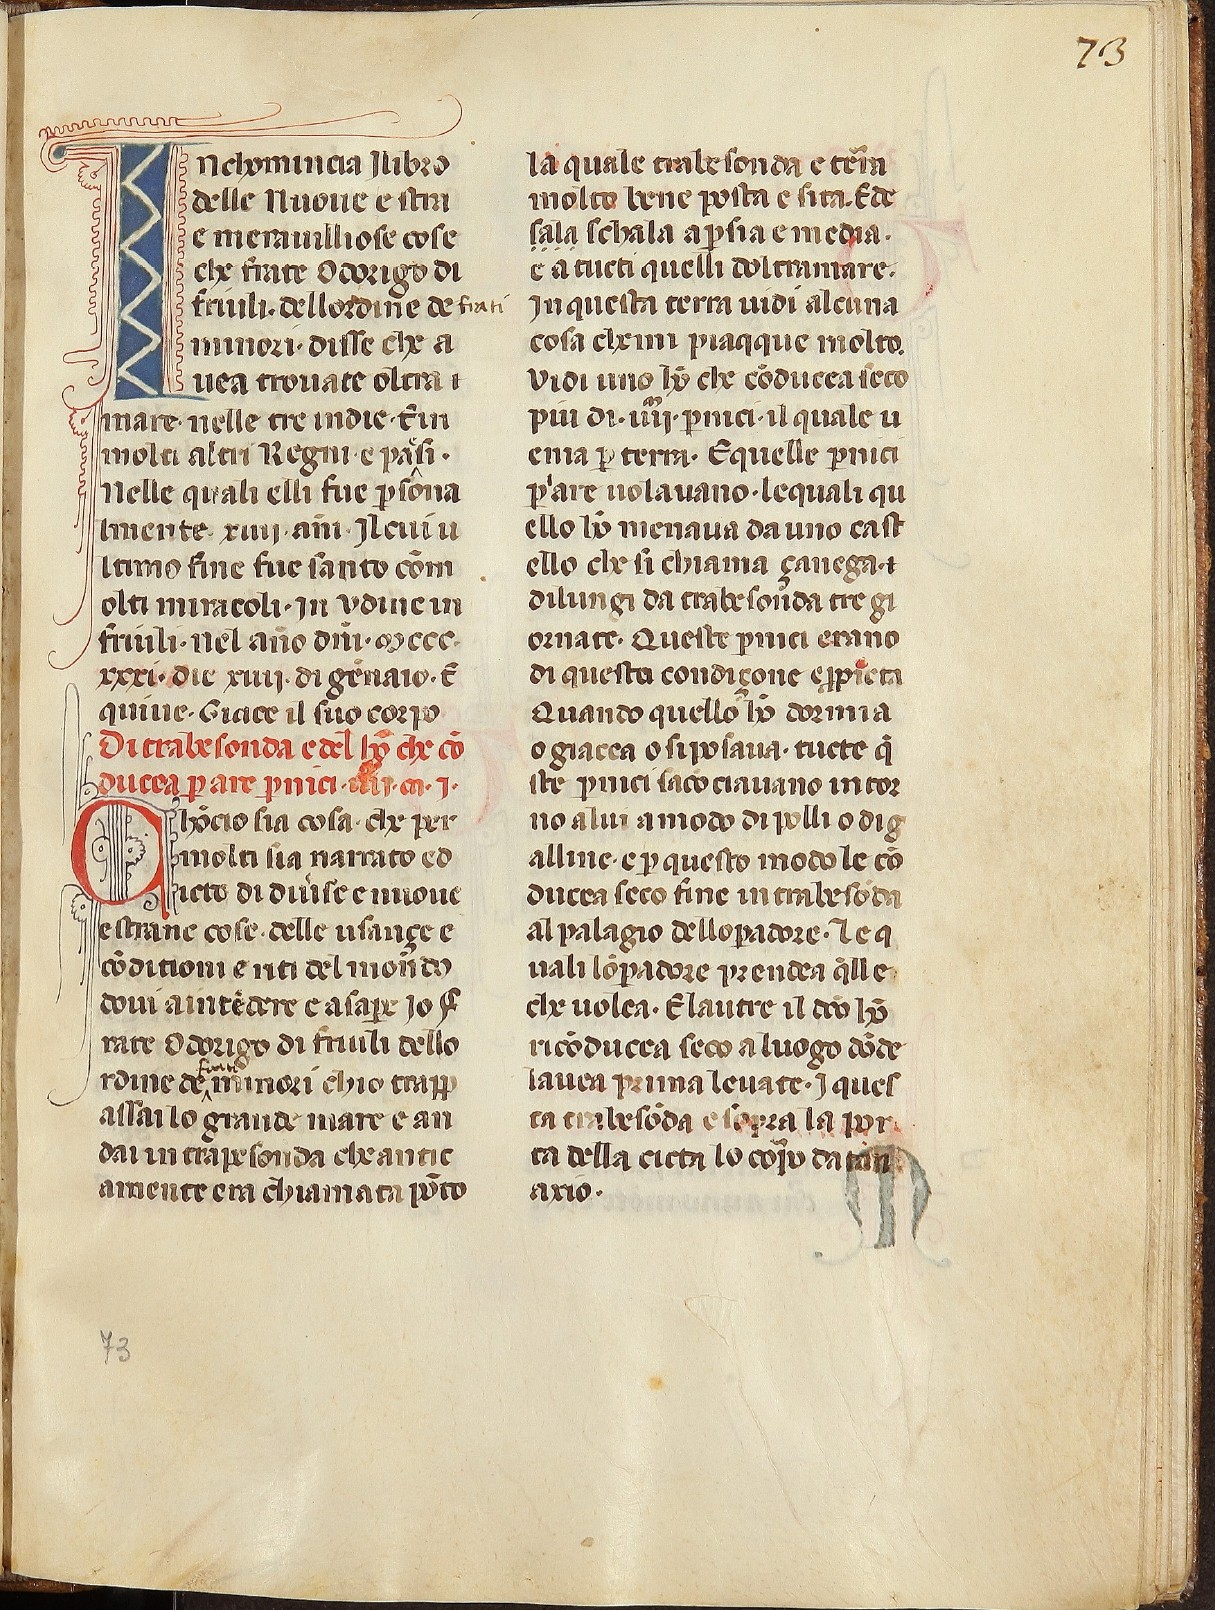 73
Inchomincia Ilibro
delle Nuoue e stra
e merauilliose cose
che frate Odorigo di
friuli. dellordine de frati
minori. disse che a
uea trouate oltra
mare. nelle tre indie. Ē in
molti altri Regni. e paesi.
Nelle quali elli fue psōna
lmente. xiiij. añi. Il cui u
ltimo fine fue santo cōm
olti miracoli. in vdine in
friuli. nel año dm̄i. mccc.
xxxi. die xiiij. di gēnaio. Ē
quiue. Giace il suo corpo
Di trabesonda e del hō che cō
ducea p are pnici. m. j.
Auegnha sia cosa. che per
molti sia narrato ed
icto di diuse e nuoue
e strane cose. delle usançe e
cōditioni e riti del mondo
doui a intēdere e a sape Io f
rate Odorigo di friuli dello
rdine de frati minori chio trapp
assai lo grande mare e an
dai in trapesonda che antic
amente era chiamata pōto
la quale trabesonda e tērra
molto bene posta e sita. Ede
sala schala a psia e media.
e a tucti quelli doltramare.
In questa terra uidi alcuna
cosa che mi piaqque molto.
Vidi uno hō che cōducea seco
piu di. iiij. pnici. il quale u
enia p terra. Equelle pnici
p are uolauano. lequali qu
ello hō menaua da uno cast
ello che si chiama çanega.
dilungi da trabesonda tre gi
ornate. Queste pnici erano
di questa condiçone e ppieta
Quando quello hō dormia
o giacea o si posaua. tucte q̄
ste pnici sacōciauano intor
no a lui a modo di polli o di g
alline. e p questo modo le cō
ducea seco fine in trabesōda
al palagio dellopadore. Le q
uali lōpadore prendea q̄lle
che uolea. E lautre il dcō hō
ricōducea seco a luogo dōde
lauea prima leuate. I ques
ta trabesōda e sopra la por
ta della cicta lo corpo datan
axio.
73